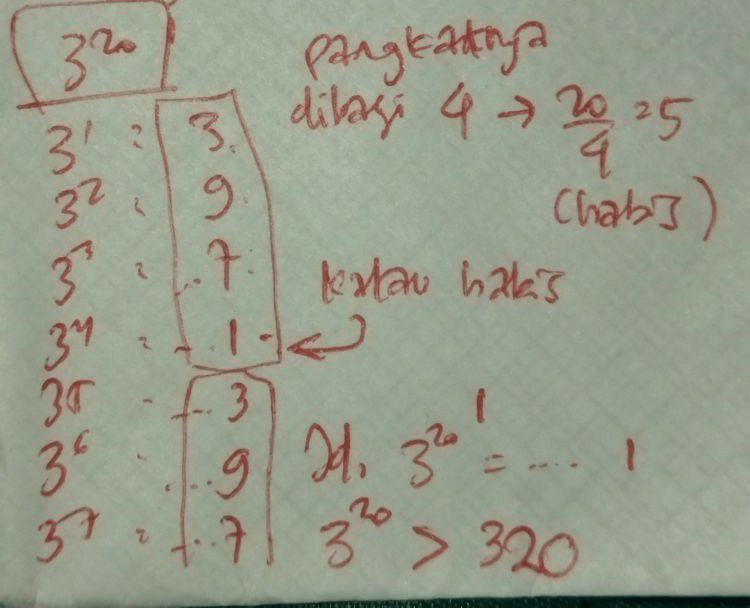 3²⁰
3¹ = 3
3² = 9
3³ = ...7
3⁴ = ...1
3⁵ = ...3
3⁶ = ...9
3⁷ = ...7
pangkatnya
dibagi 4 → 20/4 = 5
(habis)
kalau habis
Jd, 3²⁰ = .... 1
1
3²⁰ > 320